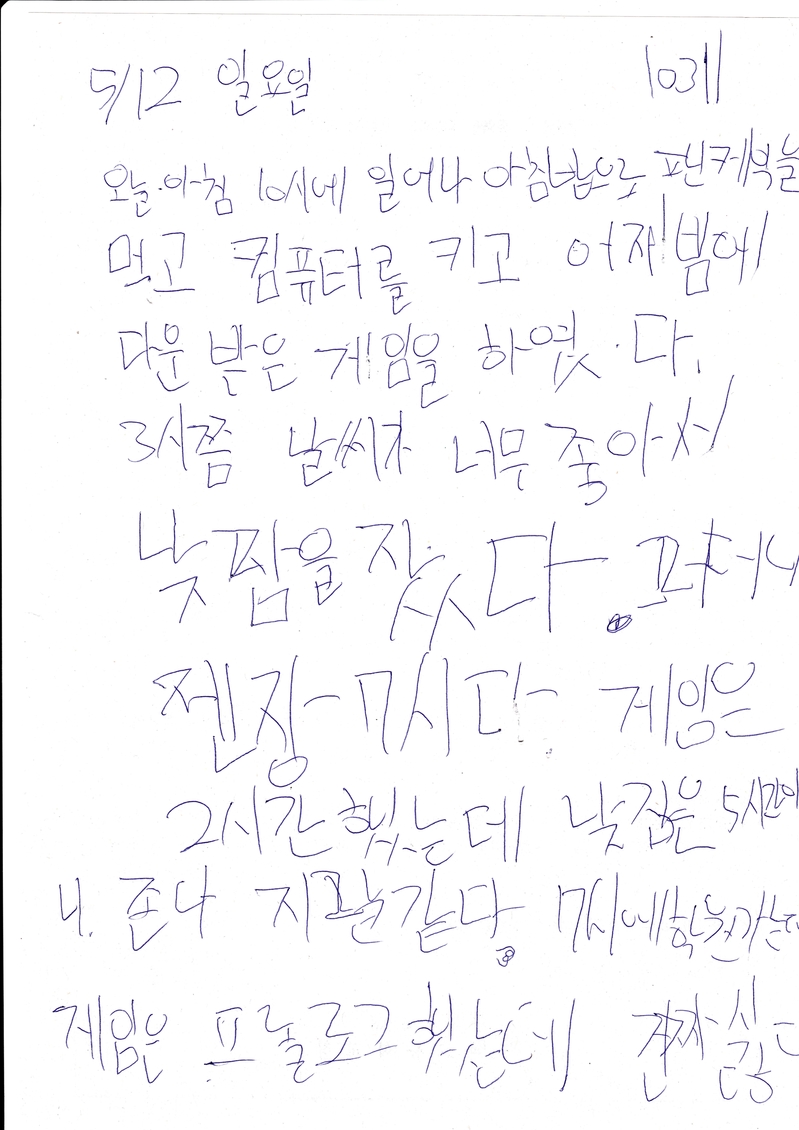 5/12 일요일 103ㅔ
오늘 아침 10시에 일어나 아침밥으로 팬케잌을
먹고 컴퓨터를 키고 어제 밤에
다운 받은 게임을 하였다.
3시쯤 날씨가 너무 좋아서
낮잠을 잤다.
젠장 7시다 게임은
2시간 했는데 낮잠은 5시간이
네. 존나 같다. 7시에 학원가는데
게임은 프롤로그 했는데 진짜